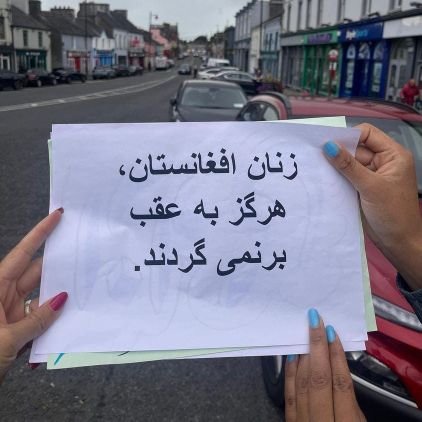 زنان افغانستان،
هرگز به عقب
برنمی گردند.